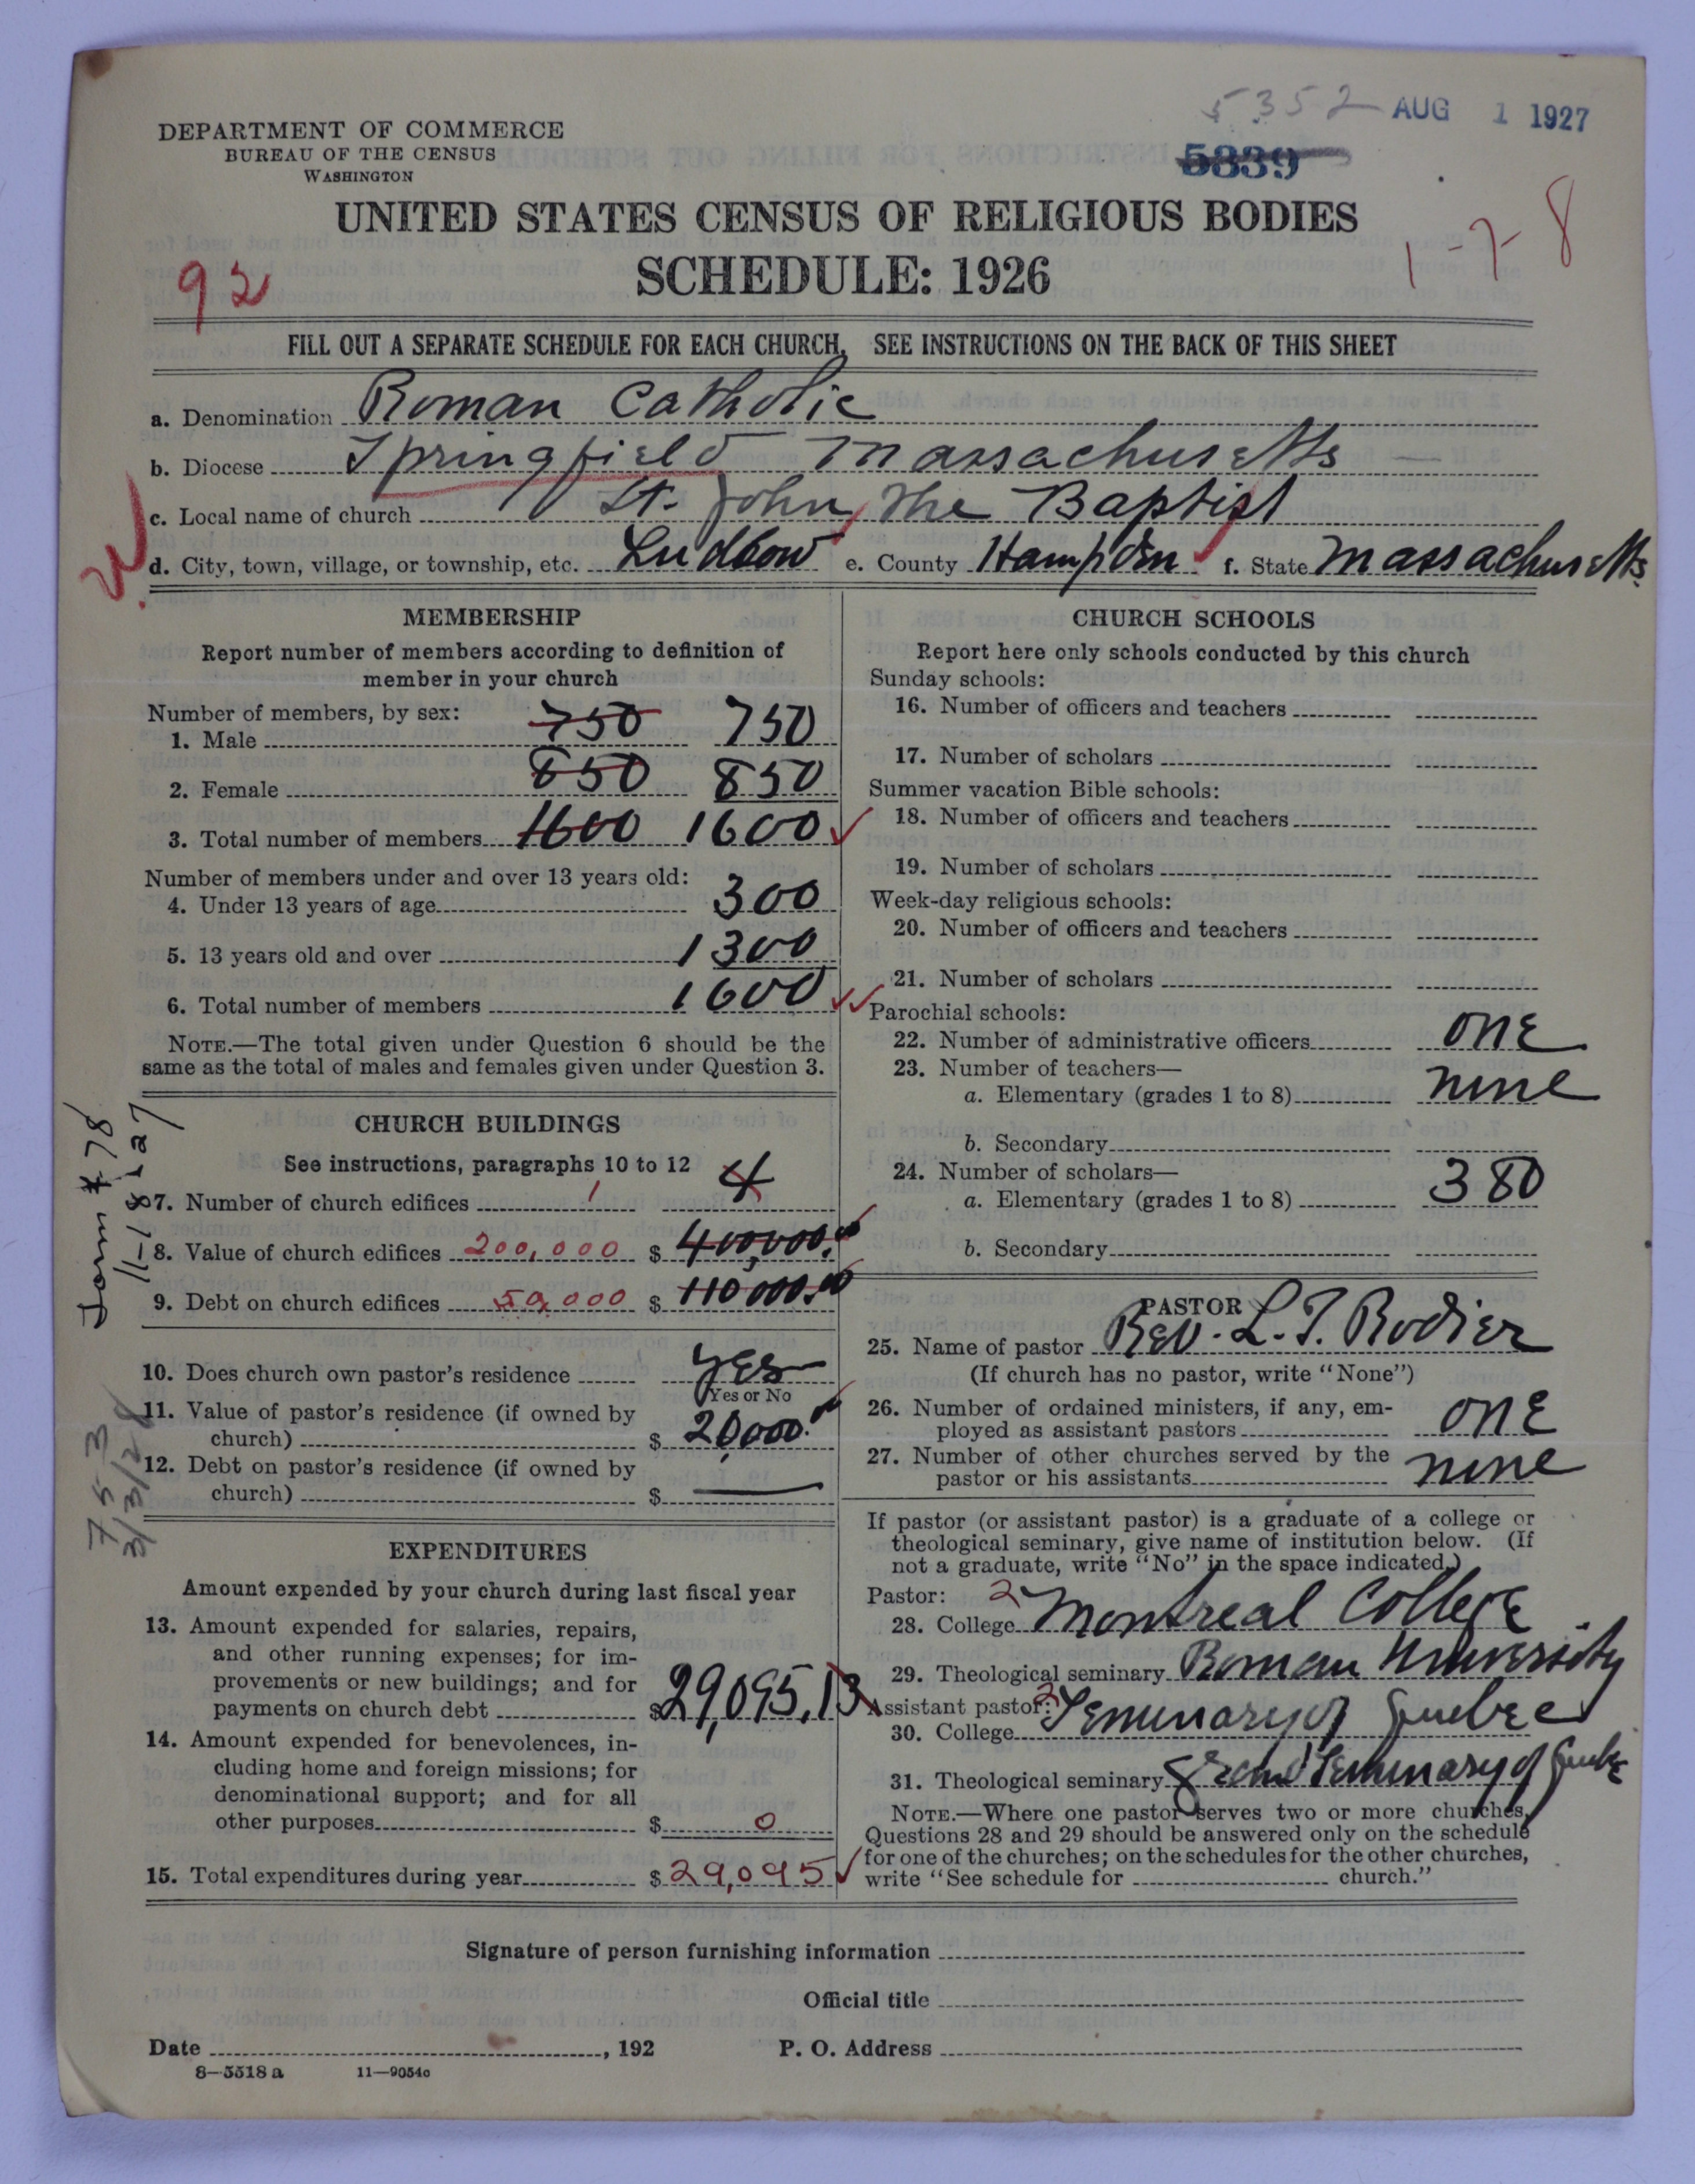 5352 AUG 1 1927
DEPARTMENT OF COMMERCE
BUREAU OF THE CENSUS
WASHINGTON
5839
UNITED STATES CENSUS OF RELIGIOUS BODIES
SCHEDULE: 1926
92
1-7-8
FILL OUT A SEPARATE SCHEDULE FOR EACH CHURCH. SEE INSTRUCTIONS ON THE BACK OF THIS SHEET
a. Denomination Roman Catholic
b. Diocese Springfield Massachusetts
c. Local name of church St. John, the Baptist
d. City, town, village, or township, etc. Ludlow e. County Hampden f. State Massachusetts.
MEMBERSHIP
Report number of members according to definition of
member in your church
Number of members, by sex:
1. Male 750 750
2. Female 850 850
3. Total number of members 1600 1600
Number of members under and over 13 years old:
4. Under 13 years of age 300
5. 13 years old and over 1300
6. Total number of members 1600
NOTE.—The total given under Question 6 should be the
same as the total of males and females given under Question 3.
CHURCH BUILDINGS
See instructions, paragraphs 10 to 12
7. Number of church edifices 1 4
8. Value of church edifices 200,000 $ 400,000.00
9. Debt on church edifices 50,000 $ 110000.00
10. Does church own pastor's residence yes
Yes or No
11. Value of pastor's residence (if owned by
church) $ 20,000.00
12. Debt on pastor's residence (if owned by
church) $ —
Form #78
11-18-27
753
EXPENDITURES
Amount expended by your church during last fiscal year
13. Amount expended for salaries, repairs,
and other running expenses; for im-
provements or new buildings; and for
payments on church debt $29,095.13
14. Amount expended for benevolences, in-
cluding home and foreign missions; for
denominational support; and for all
other purposes $ 0
15. Total expenditures during year $29,095
CHURCH SCHOOLS
Report here only schools conducted by this church
Sunday schools:
16. Number of officers and teachers
17. Number of scholars
Summer vacation Bible schools:
18. Number of officers and teachers
19. Number of scholars
Week-day religious schools:
20. Number of officers and teachers
21. Number of scholars
Parochial schools:
22. Number of administrative officers one
23. Number of teachers—
a. Elementary (grades 1 to 8) nine
b. Secondary
24. Number of scholars—
a. Elementary (grades 1 to 8) 380
b. Secondary
PASTOR
25. Name of pastor Rev. L. T. Rodier
(If church has no pastor, write "None")
26. Number of ordained ministers, if any, em-
ployed as assistant pastors one
27. Number of other churches served by the
pastor or his assistants none
If pastor (or assistant pastor) is a graduate of a college or
theological seminary, give name of institution below. (If
not a graduate, write "No" in the space indicated.)
Pastor: 2
28. College Montreal College
29. Theological seminary Roman University
Assistant pastor: 2
30. College Seminary of Quebec
31. Theological seminary Grand Seminary of Quebec
NOTE.—Where one pastor serves two or more churches,
Questions 28 and 29 should be answered only on the schedule
for one of the churches; on the schedules for the other churches,
write "See schedule for church."
Signature of person furnishing information
Official title
Date , 192 P. O. Address
8—5518 a 11—9054c